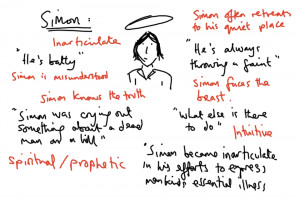 Simon:
Inarticulate
"He's batty"
Simon is misunderstood
Simon knows the truth
"Simon was crying out
something about a dead
man on a hill"
spiritual/prophetic
Simon often retreats
to his quiet place
"He's always
throwing a faint"
Simon faces the
beast:
"what else is there
to do"
Intuitive
"Simon became inarticulate
in his efforts to express
mankind's essential illness